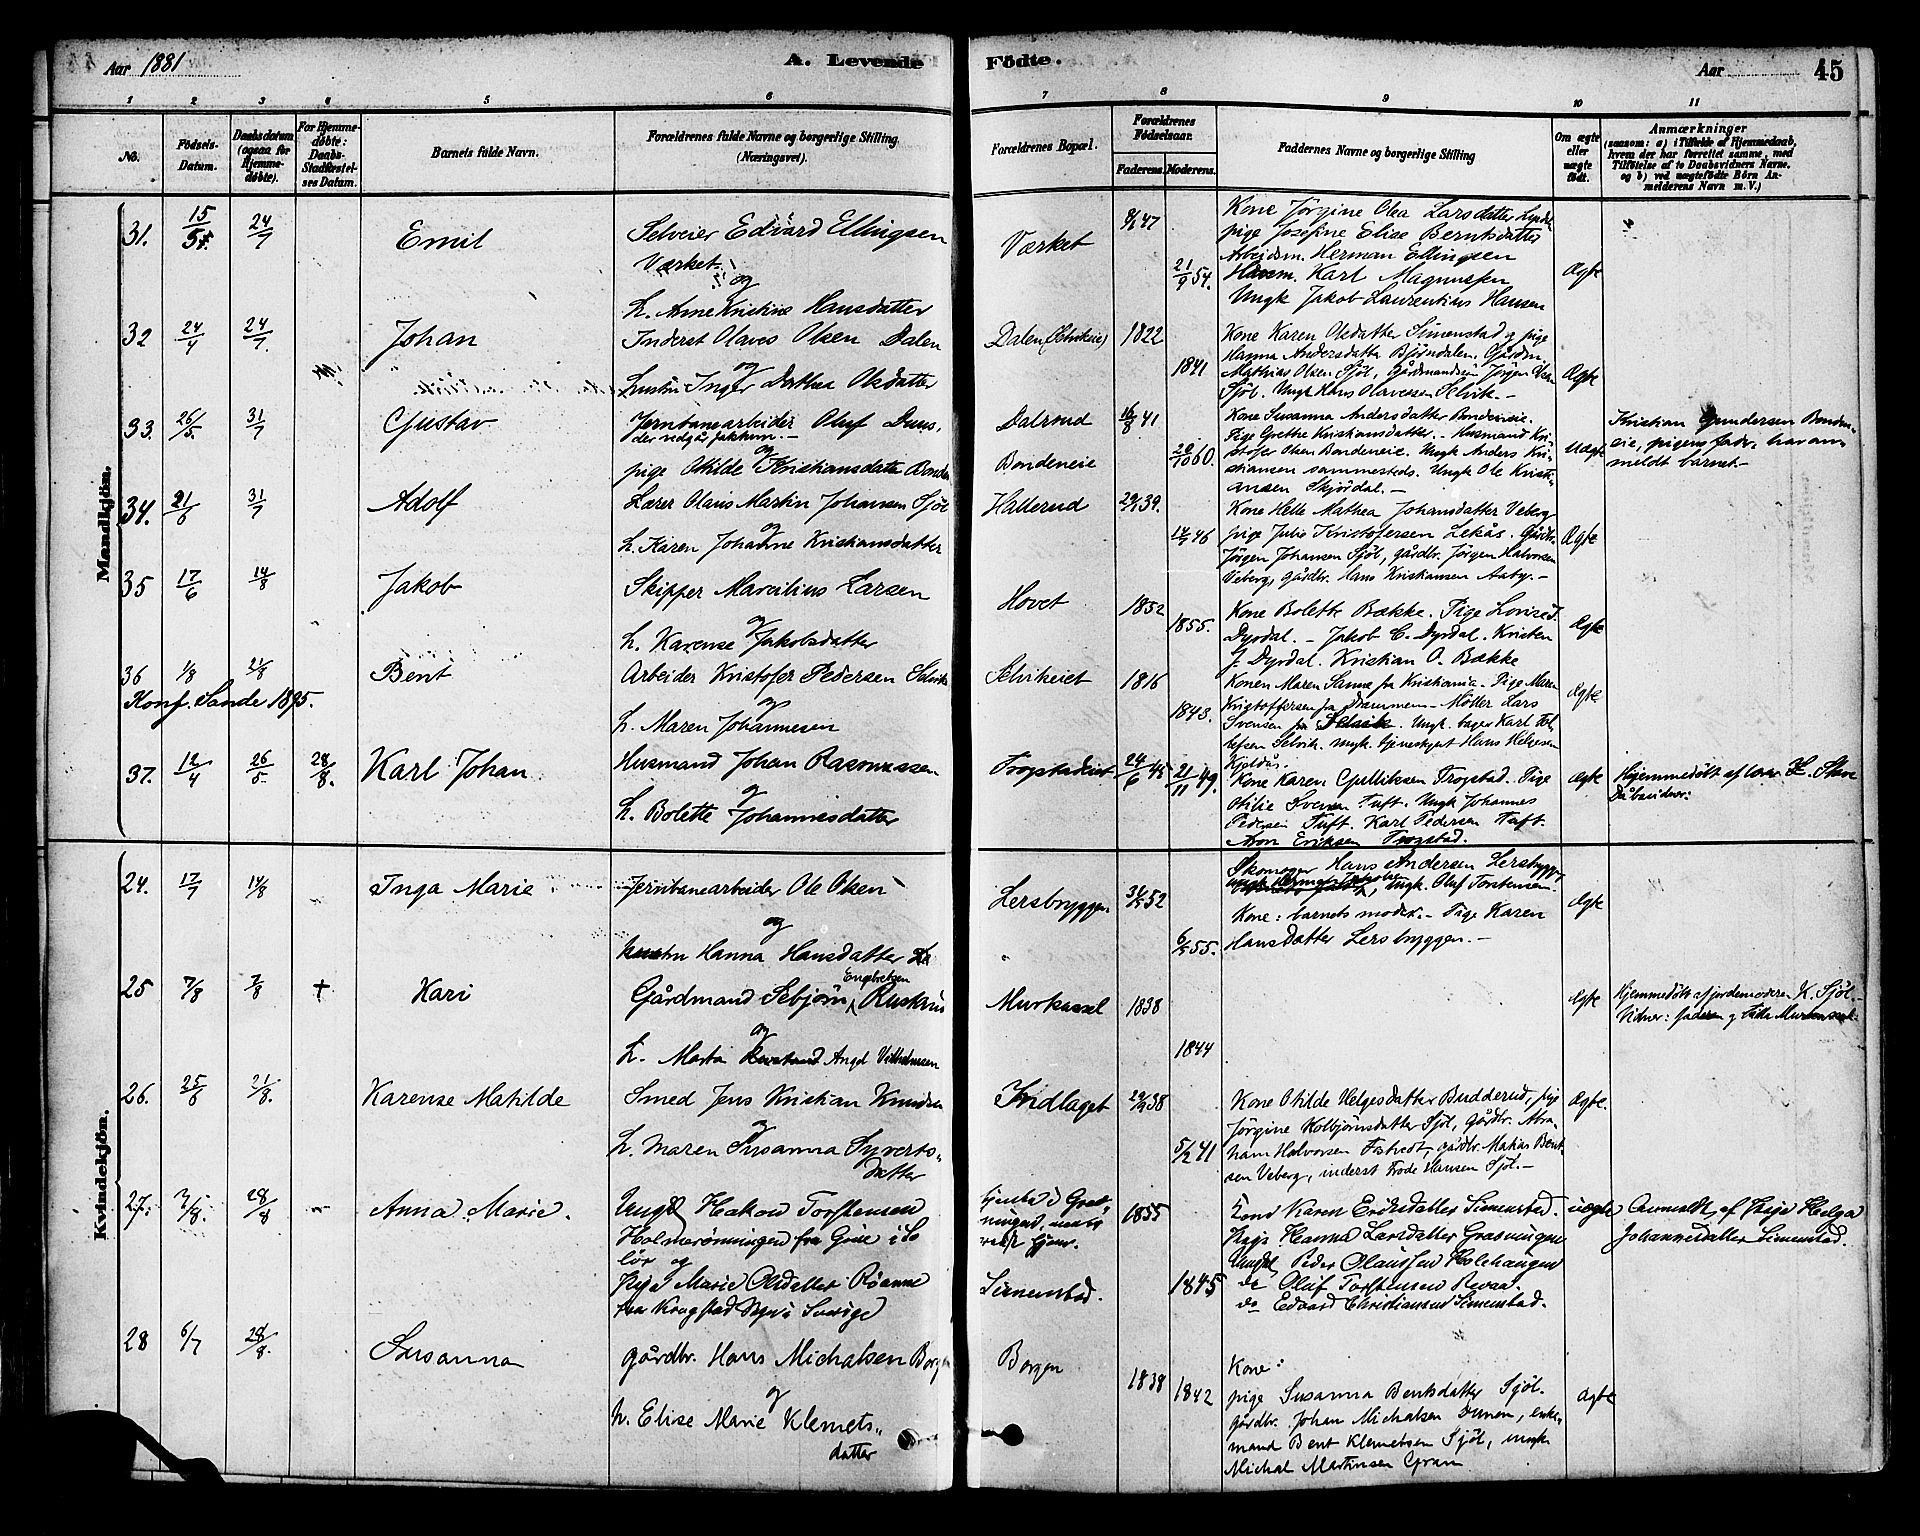 Aar 1881
A. Levende
Födte.
Aar
45
1 2 3 4 5 6 7 8 9 10 11
No.
Födsels-
Datum.
Daabsdatum
(ogsaa for
Hjemme-
döbte).
For Hjemme-
döbte:
Daabs-
Stadfæstel-
ses Datum.
Barnets fulde Navn.
Forældrenes fulde Navne og borgerlige Stilling
(Næringsvei).
Forældrenes Bopæl.
Forældrenes
Födselsaar.
Faderens. Moderens.
Faddernes Navne og borgerlige Stilling
Om ægte
eller
uægte
födt.
Anmærkninger
(saasom: a) i Tilfælde af Hjemmedaab,
hvem der har forrettet samme, med
Tilföielse af to Daabsvidners Navne,
og b) ved uægtefödte Börn An-
melderens Navn m. V.)
Mandkjön.
31. 15/5 24/7 Emil
Selveier Edvard Ellingsen
Værket
og
h. Anne Kristine Hansdatter
Værket
47
21/9 54.
Kone Jörgine Olea Larsdatter
pige Josefine Elise Berntsdatter
Arbeidsm. Herman Ellingsen
Karl Magnussen
Ungk Jakob Laurentius Hansen
Ægte
32 24/4 24/7 Johan
Inderst Olaves Olsen Dalen
og
Hustru Inger Dorthea Olsdatter
Dalen (Selvikeie) 1822
1841
Kone Karen Olsdatter Simenstad og pige
Hanna Andersdatter Björndalen. Gårdm.
Mathias Olsen Sjöl, Gårdmandssön Jörgen
Sjöl. Ungk Hans Olavesen Selvik.
Ægte
33. 26/5 31/7 Gustav
Jernbanearbeider Oluf Duus,
og
pige Otilde Kristiansdatter Bonden
Dalsrud
Bondeneie
16/8 41
28/10 60.
Kone Susanna Andersdatter Bondeneie.
Pige Grethe Kristiansdatter. Husmand Kri-
stofer Olsen Bondeneie. Ungk Anders Kri-
stiansen sammesteds. Ungk Ole Kristi-
ansen Skjördal.
Uægte
Kristian Gundersen Bonden-
eie, pigens fader, har an-
meldt barnet.
34. 21/6 31/7 Adolf
Lærer Olaus Martin Johansen Sjöl
og
h. Karen Johanne Kristiansdatter
Hallerud 39.
46
Kone Helle Mathea Johansdatter Veberg
pige Julie Kristofersen Lekås. Gårdbr.
Jörgen Johansen Sjöl, gårdbr. Jörgen Halvorsen
Veberg, gårdbr. Hans Kristiansen Aaby.
Ægte
35 17/6 14/8 Jakob
Skipper Marcilius Larsen
og
h. Karense Jakobsdatter
Hovet 1852
1855.
Kone Bolette Bække. Pige Lovise J.
Dyrdal. Jakob C. Dyrdal. Kristen
J. Dyrdal. Kristian O. Bække
Ægte
36 1/8 21/8 Bent
Konf. Sande 1895.
Arbeider Kristofer Pedersen Selvik
og
h. Maren Johannesen
Selvikeiet 1816
1843.
Konen Maren Sanne fra Kristiania. Pige Maren
Kristoffersen fra Drammen. Möller Lars
Svensen fra Selvik. Ungk. bager Karl
Selvik. Ungk. tjenestgut Hans Helgesen
Kjeldås.
Ægte
37. 12/4 26/5 28/8. Karl Johan
Husmand Johan Rasmussen
og
h. Bolette Johannesdatter
Trogstadeiet
24/6 45 21/11 49.
Kone Karen Gulliksen Trogstad. Pige
Otilie Svensen Tuft. Ungk Johannes
Pedersen Tuft. Karl Pedersen Tuft.
Aron Eriksen Trogstad.
Ægte
Hjemmedöbt af lærer
Dåbsvidner:
Kvindekjön.
24. 17/7 14/8 Inga Marie
Jernbanearbeider Ole Olsen
og
hustru Hanna Hansdatter
Lersbryggen 52
55.
Skomager Hans Andersen Lersbryggen,
Ungk. Oluf Torstensen
Kone: barnets moder. Pige Karen
Hansdatter Lersbryggen.
Ægte
25 7/8 7/8 +
Kari
Gårdmand Sebjörn Engebretsen
og
h. Marta Angel Vilhelmsen
Murkassel 1838
1844
Ægte
Hjemmedöbt af jordemoderen K. Sjöl.
Vidner: faderen og
26. 25/6 21/8. Karense Matilde
Smed Jens Kristian Knudsen
og
h. Maren Susanna Syverts-
datter
Indlaget 38
5/2 41
Kone Otilde Helgesdatter Budderud, pige
Jörgine Kolbjörnsdatter Sjöl, gårdbr. Abra-
ham Halvorsen Fostvedt, gårdbr. Matias Bent-
sen Veberg, inderst Frode Hansen Sjöl.
Ægte.
27. 2/8. 28/8 Anna Marie.
Ungk Hakon Torstensen
Holmerönningen fra Grue i So-
lör og
Pige Marie Olsdatter Röanne
fra Krogstad Sogn i Sverige
Simenstad.
1855
1845
Kone Karen Eriksdatter Simenstad.
Pige Hanna Larsdatter Grasningen
Ungk Peder Olaussen Holehaugen
do Oluf Torstensen Revaa.
do Edvard Christiansen Simenstad.
uægte
Anmeldt af Pige Helga
Johannesdatter Simenstad.
28 6/7 28/8. Susanna
Gårdbr. Hans Michalsen Borgen
og
h. Elise Marie Klemets-
datter
Borgen 1838
1842
Kone:
pige Susanna Bentsdatter Sjöl.
gårdbr. Johan Michalsen Dunen, enke-
mand Bent Klemetsen Sjöl, ungk
Michal Martinsen Gran
Ægte